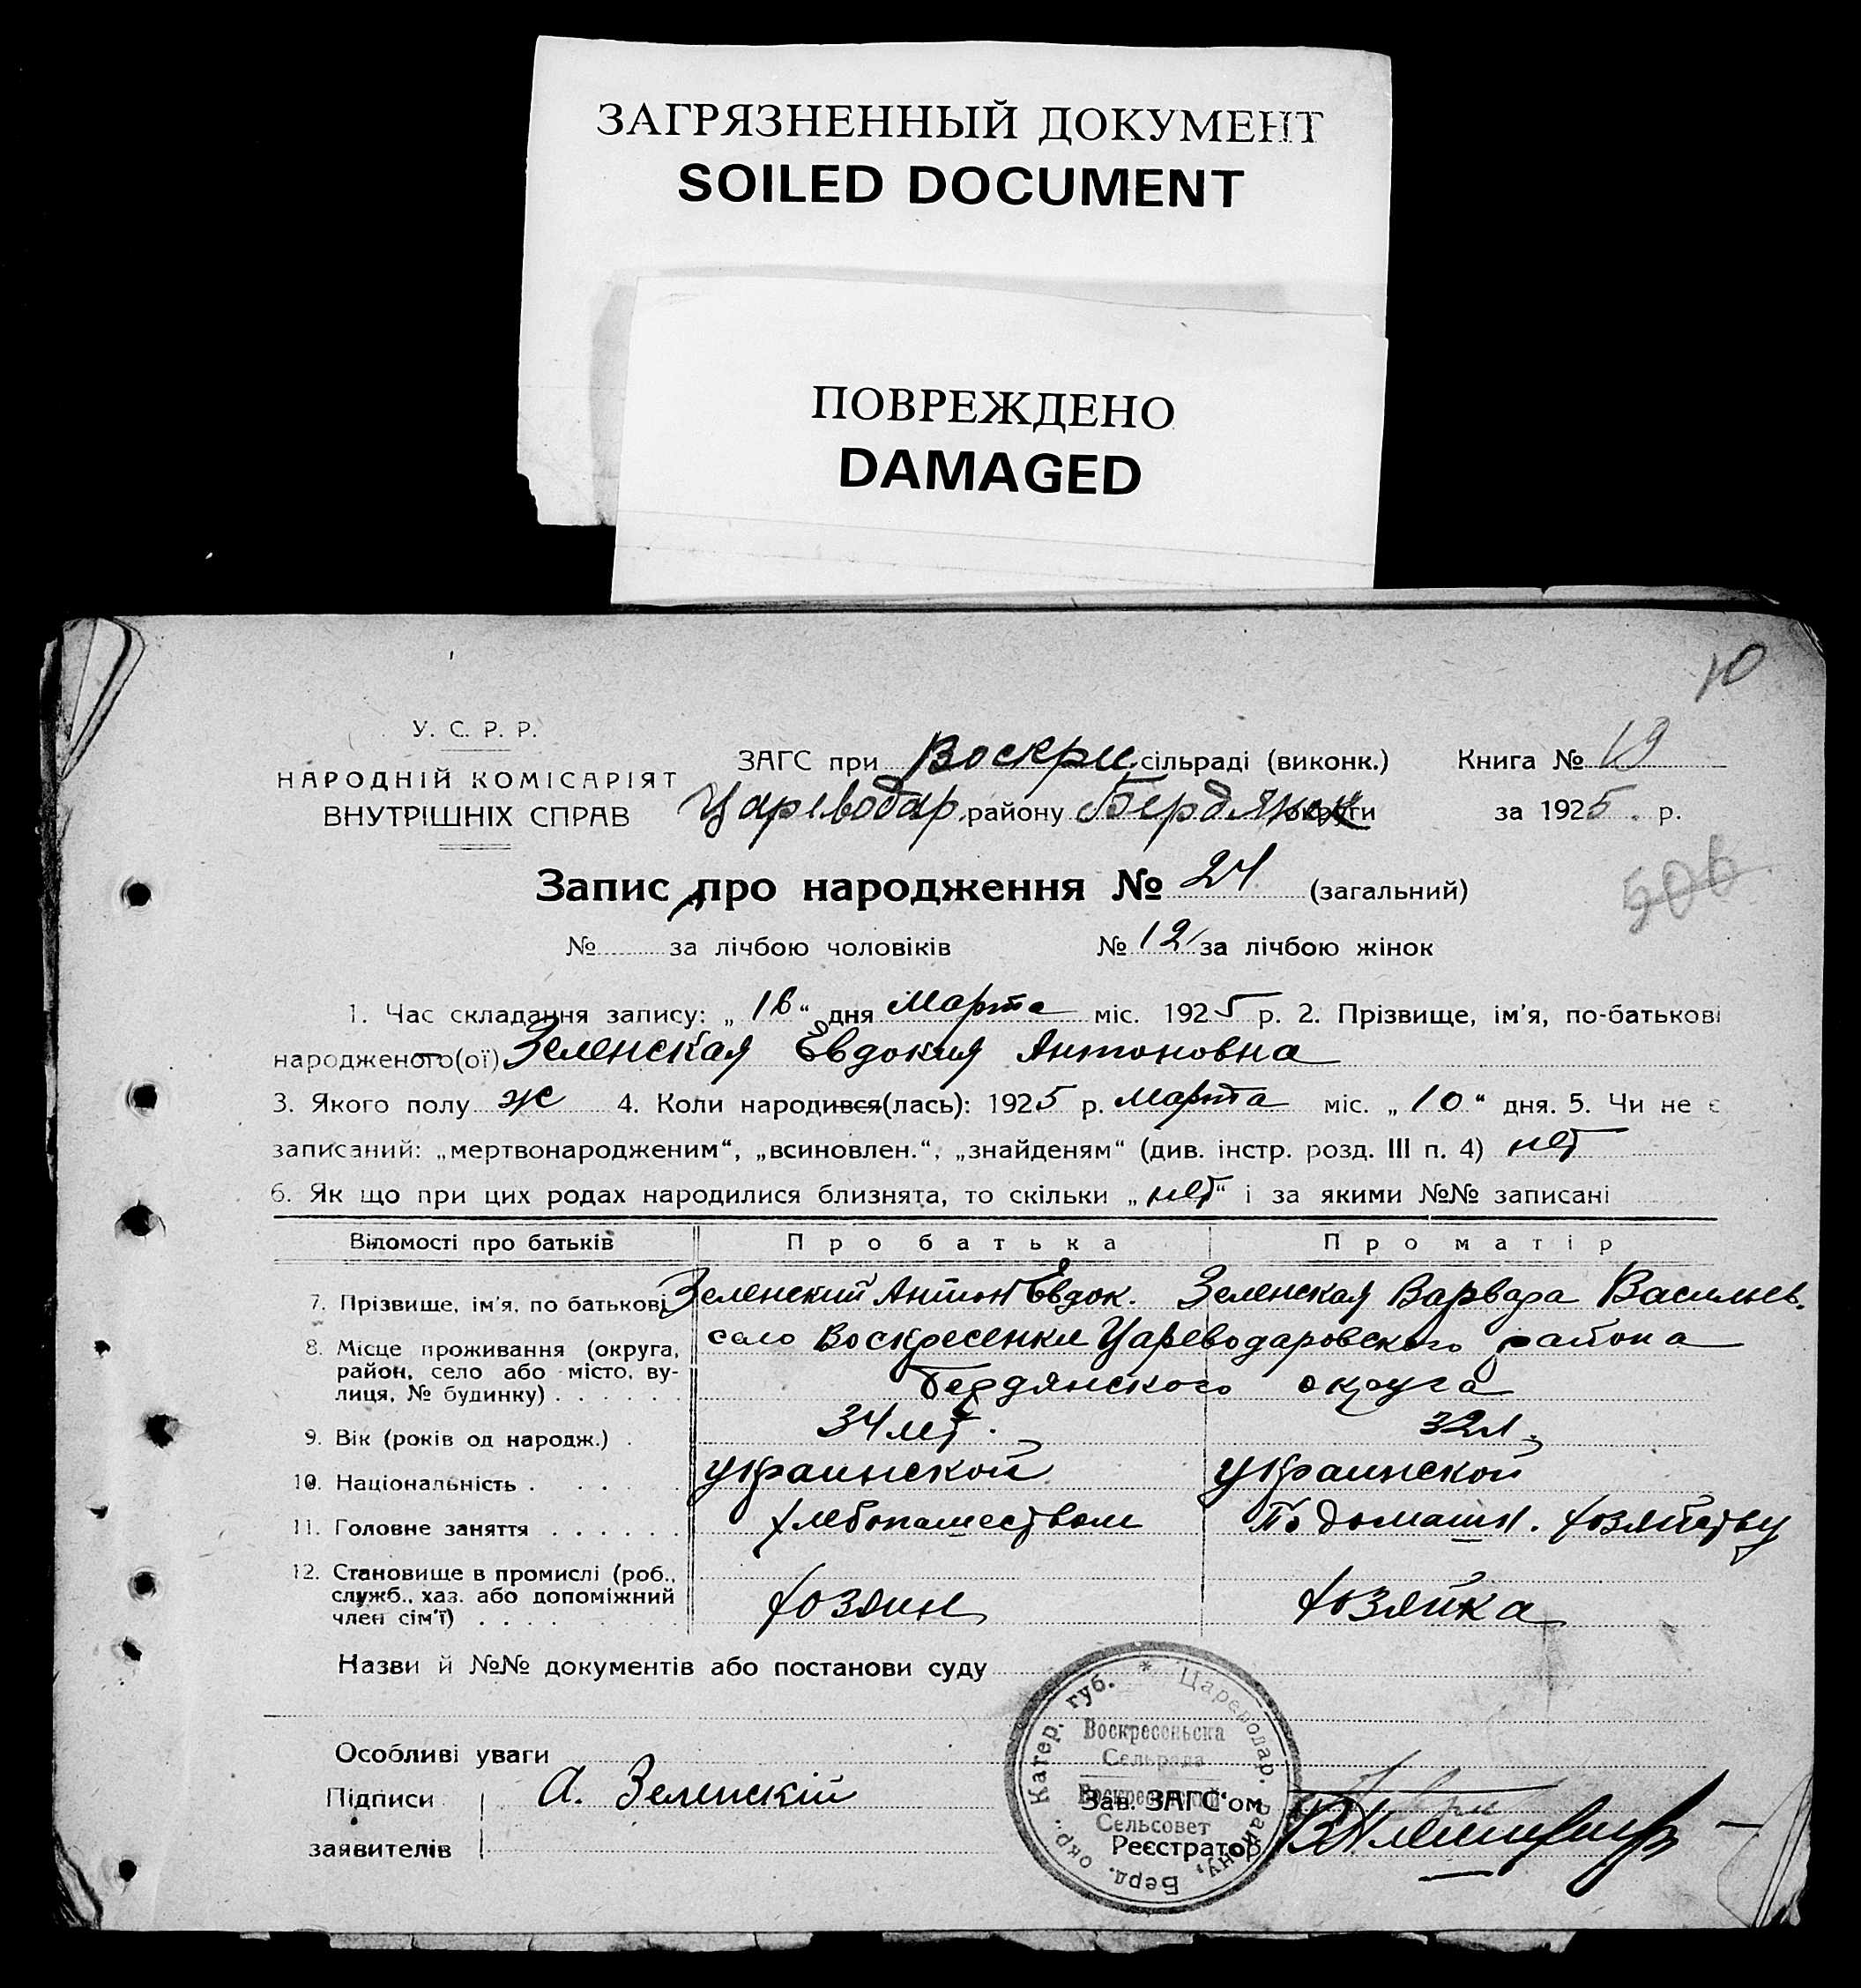 ЗАГРЯЗНЕННЫЙ ДОКУМЕНТ
SOILED DOCUMENT
ПОВРЕЖДЕНО
DAMAGED
10
У. С. Р. Р.
НАРОДНІЙ КОМІСАРІЯТ
ВНУТРІШНІХ СПРАВ
ЗАГС при Воскри сільраді (виконк.) Книга № 19
Цареводар. району Бердянск округи за 1925 . р.
Запис про народження № 24 (загальний)
506
№ за лічбою чоловіків № 12 за лічбою жінок
1. Час складання запису: „ 16 “ дня Марта міс. 1925 р. 2. Прізвище, ім'я, по-батькові
народженого(ої) Зеленская Евдокия Антоновна
3. Якого полу ж 4. Коли народився(лась): 1925 р. марта міс. „ 10 “ дня. 5. Чи не є
записаний: „мертвонародженим“, „всиновлен.“, „знайденям“ (див. інстр. розд. III п. 4) нет
6. Як що при цих родах народилися близнята, то скільки „ нет “ і за якими №№ записані
Відомості про батьків Про батька Про матір
7. Прізвище, ім'я, по батькові Зеленский Антон Евдок. Зеленская Варвара Васильев.
8. Місце проживання (округа, район, село або місто, вулиця, № будинку) село Воскресенки Цареводаровского района
Бердянского округа
9. Вік (років од народж.) . 34 лет. 32 л.
10. Національність . . . . украинской украинской
11. Головне заняття . . . . . . хлебопашеством По домашн. хозяйству
12. Становище в промислі (роб., служб., хаз. або допоміжний член сім'ї) . . . . . хозяин хозяйка
Назви й №№ документів або постанови суду
Особливі уваги
Підписи заявителів А. Зеленскій
Зав. ЗАГС'ом
Реєстратор
* Цареводар. району, Берд. окр. Катер. губ.
Воскресеньска
Сельрада
Воскресенский
Сельсовет